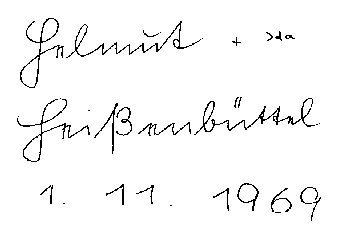 Helmut + Ida
Heißenbüttel
1. 11. 1969